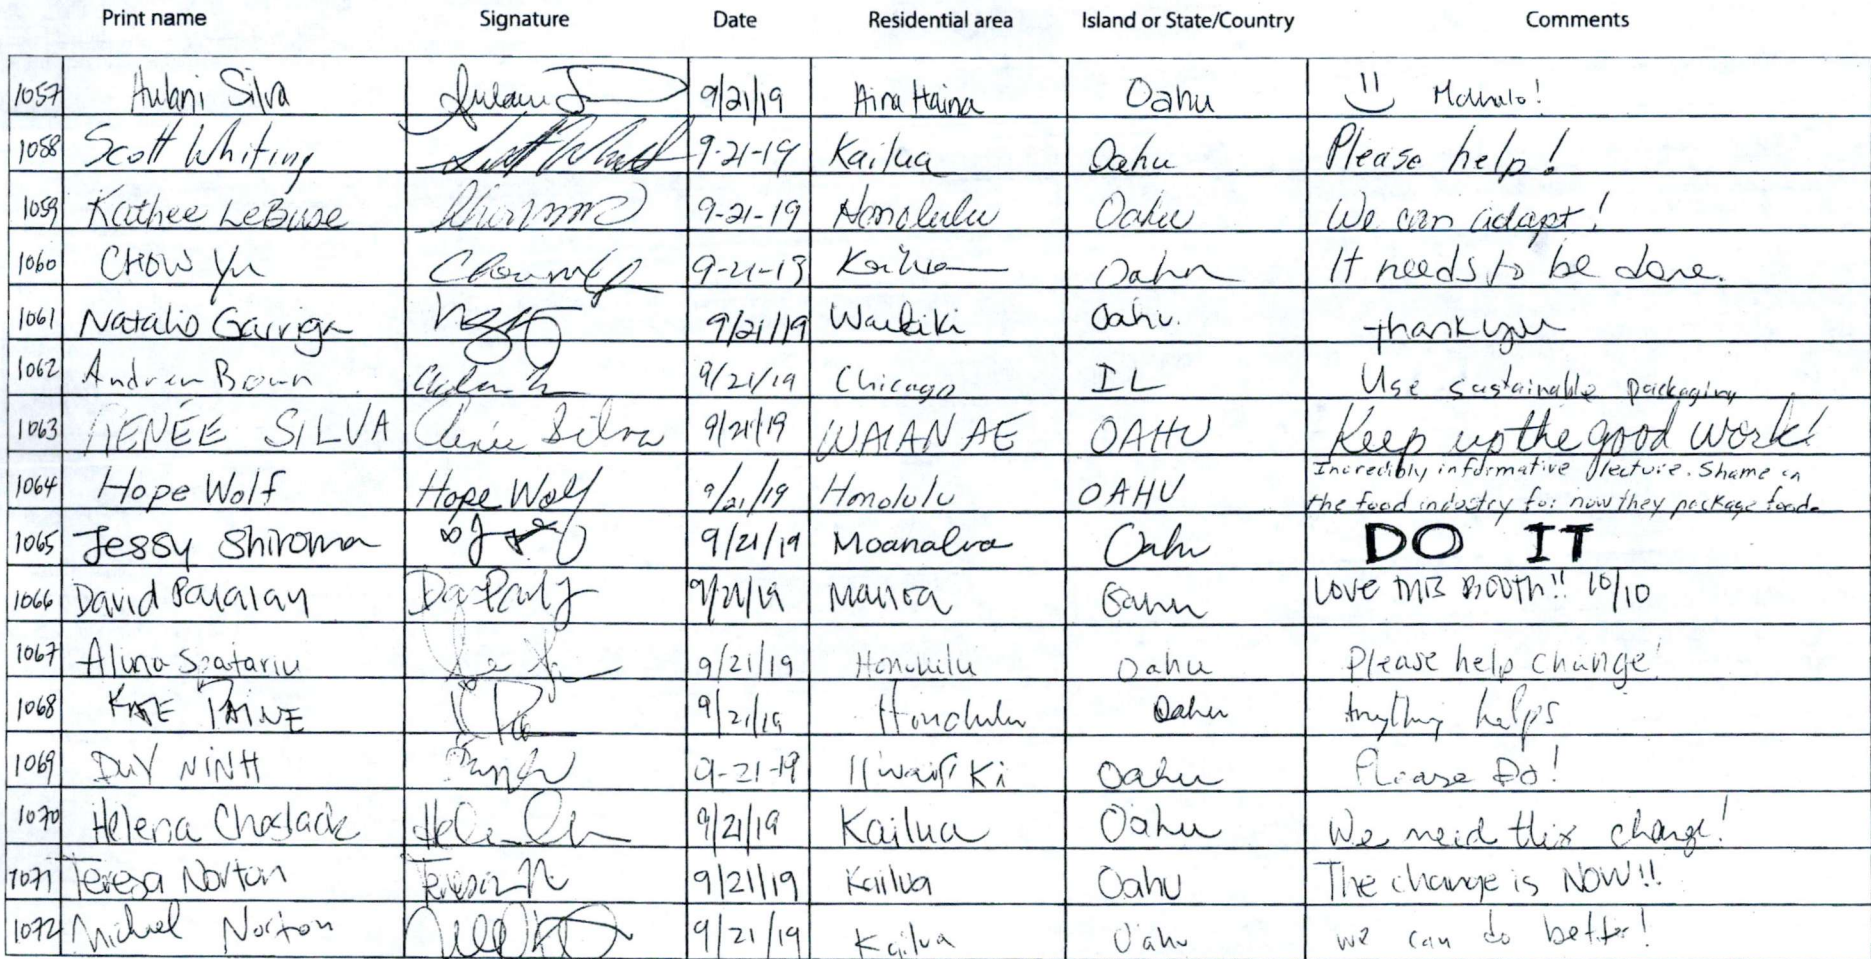 Print name Signature Date Residential area Island or State/Country Comments
1057 Aulani Silva 9/21/19 Aina Haina Oahu Mahalo!
1058 Scott Whiting 9-21-19 Kailua Oahu Please help!
1059 Kathee LeBuse 9-21-19 Honolulu Oahu We can adapt!
1060 CHOW Yu 9-21-19 Kailua Oahu It needs to be done.
1061 Natalio Garriga 9/21/19 Waikiki Oahu. thank you
1062 Andrew Bown 9/21/19 Chicago IL Use sustainable packaging
1063 RENÉE SILVA Renée Silva 9/21/19 WAIANAE OAHU Keep up the good work!
1064 Hope Wolf Hope Wolf 9/21/19 Honolulu OAHU Incredibly informative lecture. Shame on
the food industry for how they package food.
1065 Jessy Shiroma 9/21/19 Moanalua Oahu DO IT
1066 David 9/21/19 Manoa Oahu LOVE THIS BOOTH!! 10/10
1067 Alina Spatariu 9/21/19 Honolulu Oahu Please help change!
1068 KATE PAINE 9/21/19 Honolulu Oahu Anything helps
1069 DUY NINH 9-21-19 Oahu Please Do!
1070 Helena 9/21/19 Kailua Oahu We need this change!
1071 Teresa Norton Teresa N 9/21/19 Kailua Oahu The change is NOW!!
1072 Michael Norton 9/21/19 Kailua Oahu we can do better!